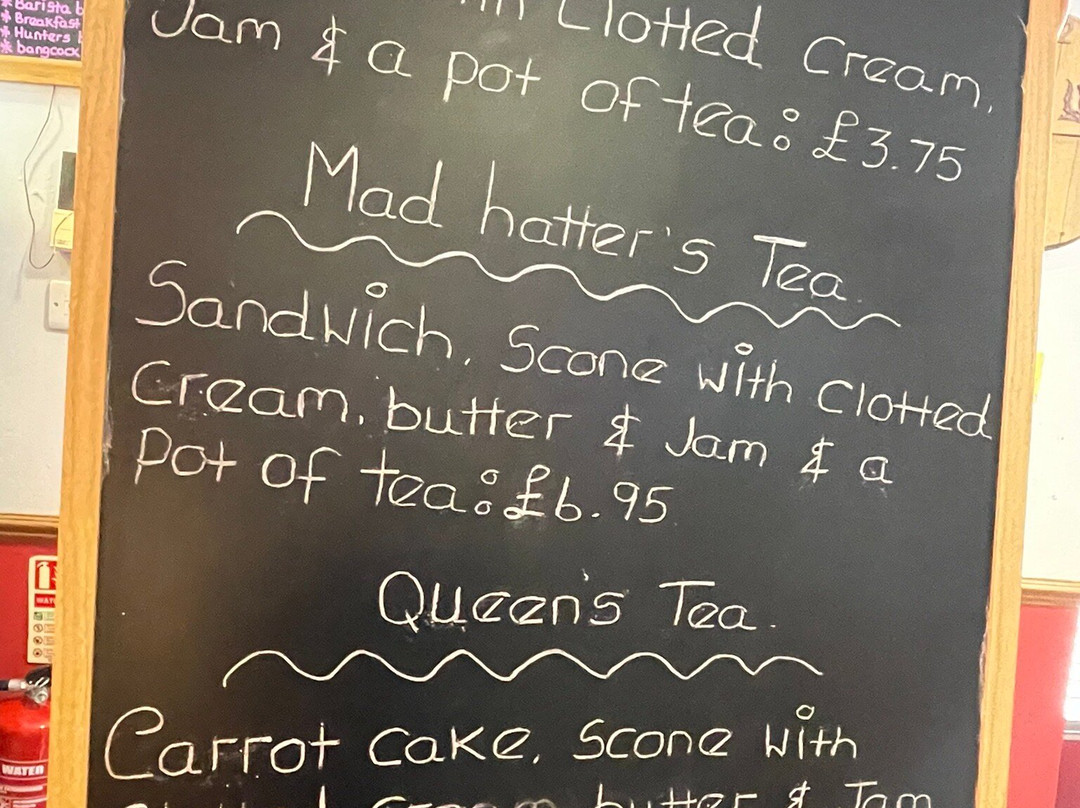 *Barista b
*Breakfast
*Hunters
*bangcock
Clotted Cream,
Jam & a pot of tea: £3.75
Mad hatter's Tea.
Sandwich, Scone with Clotted
Cream, butter & Jam & a
Pot of tea: £6.95
Queen's Tea.
Carrot cake, Scone with
Cream butter & Jam
WATER